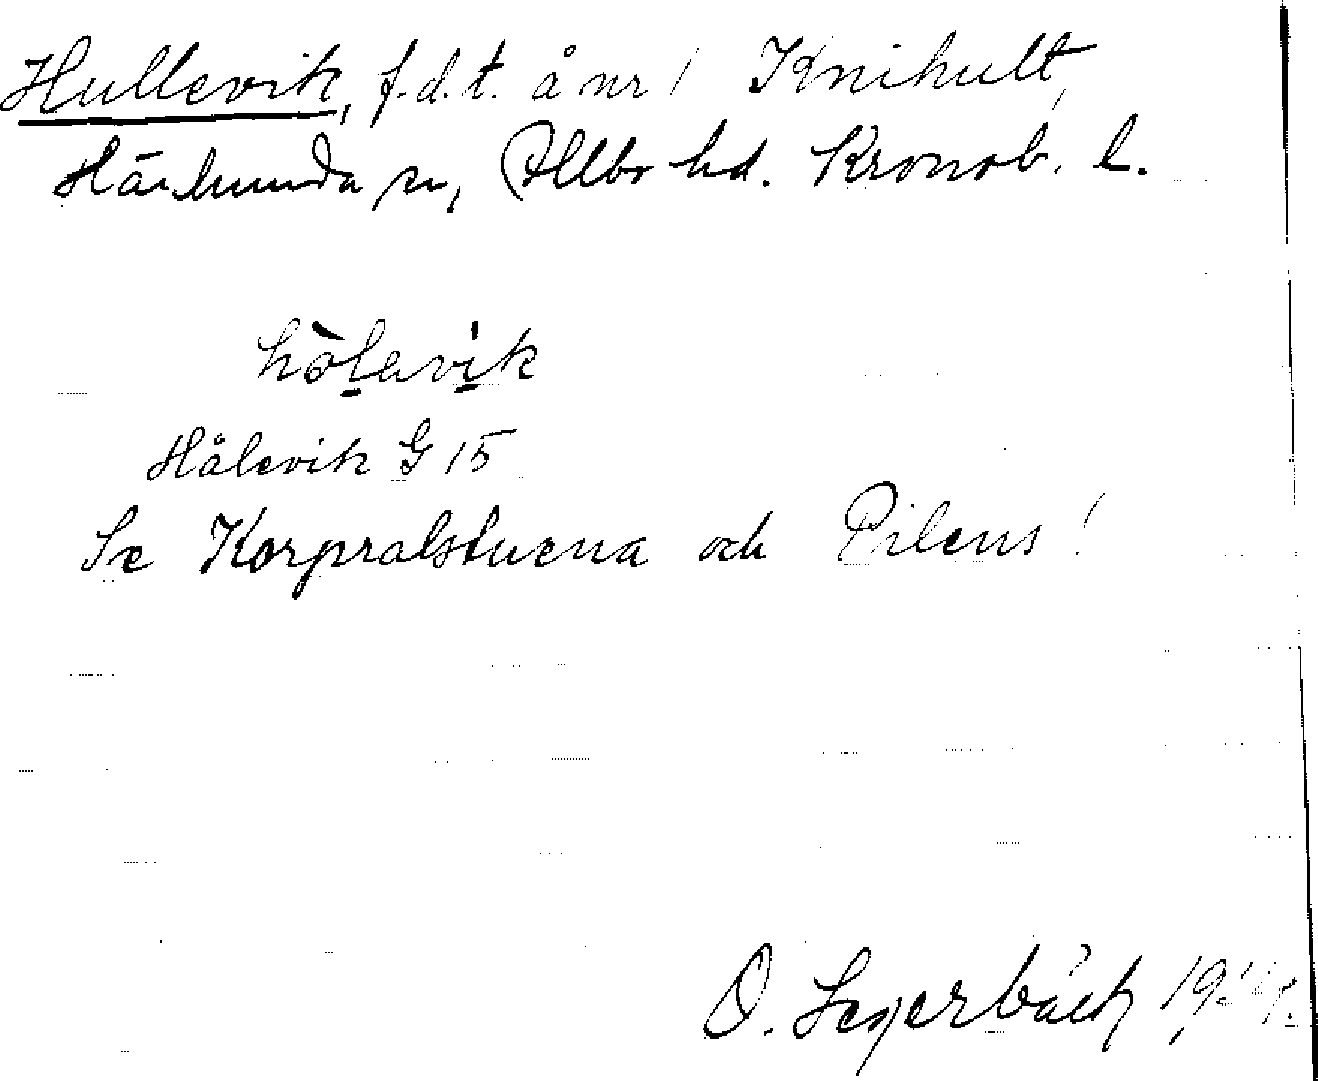 Hullevik, f.d.t. å nr 1 Knihult,
Härlunda sn, Allbo hd. Kronob. l.
hòlavik
Hålevik G 15
Se Korpralstuena och Pilens!
O. Segerbäck